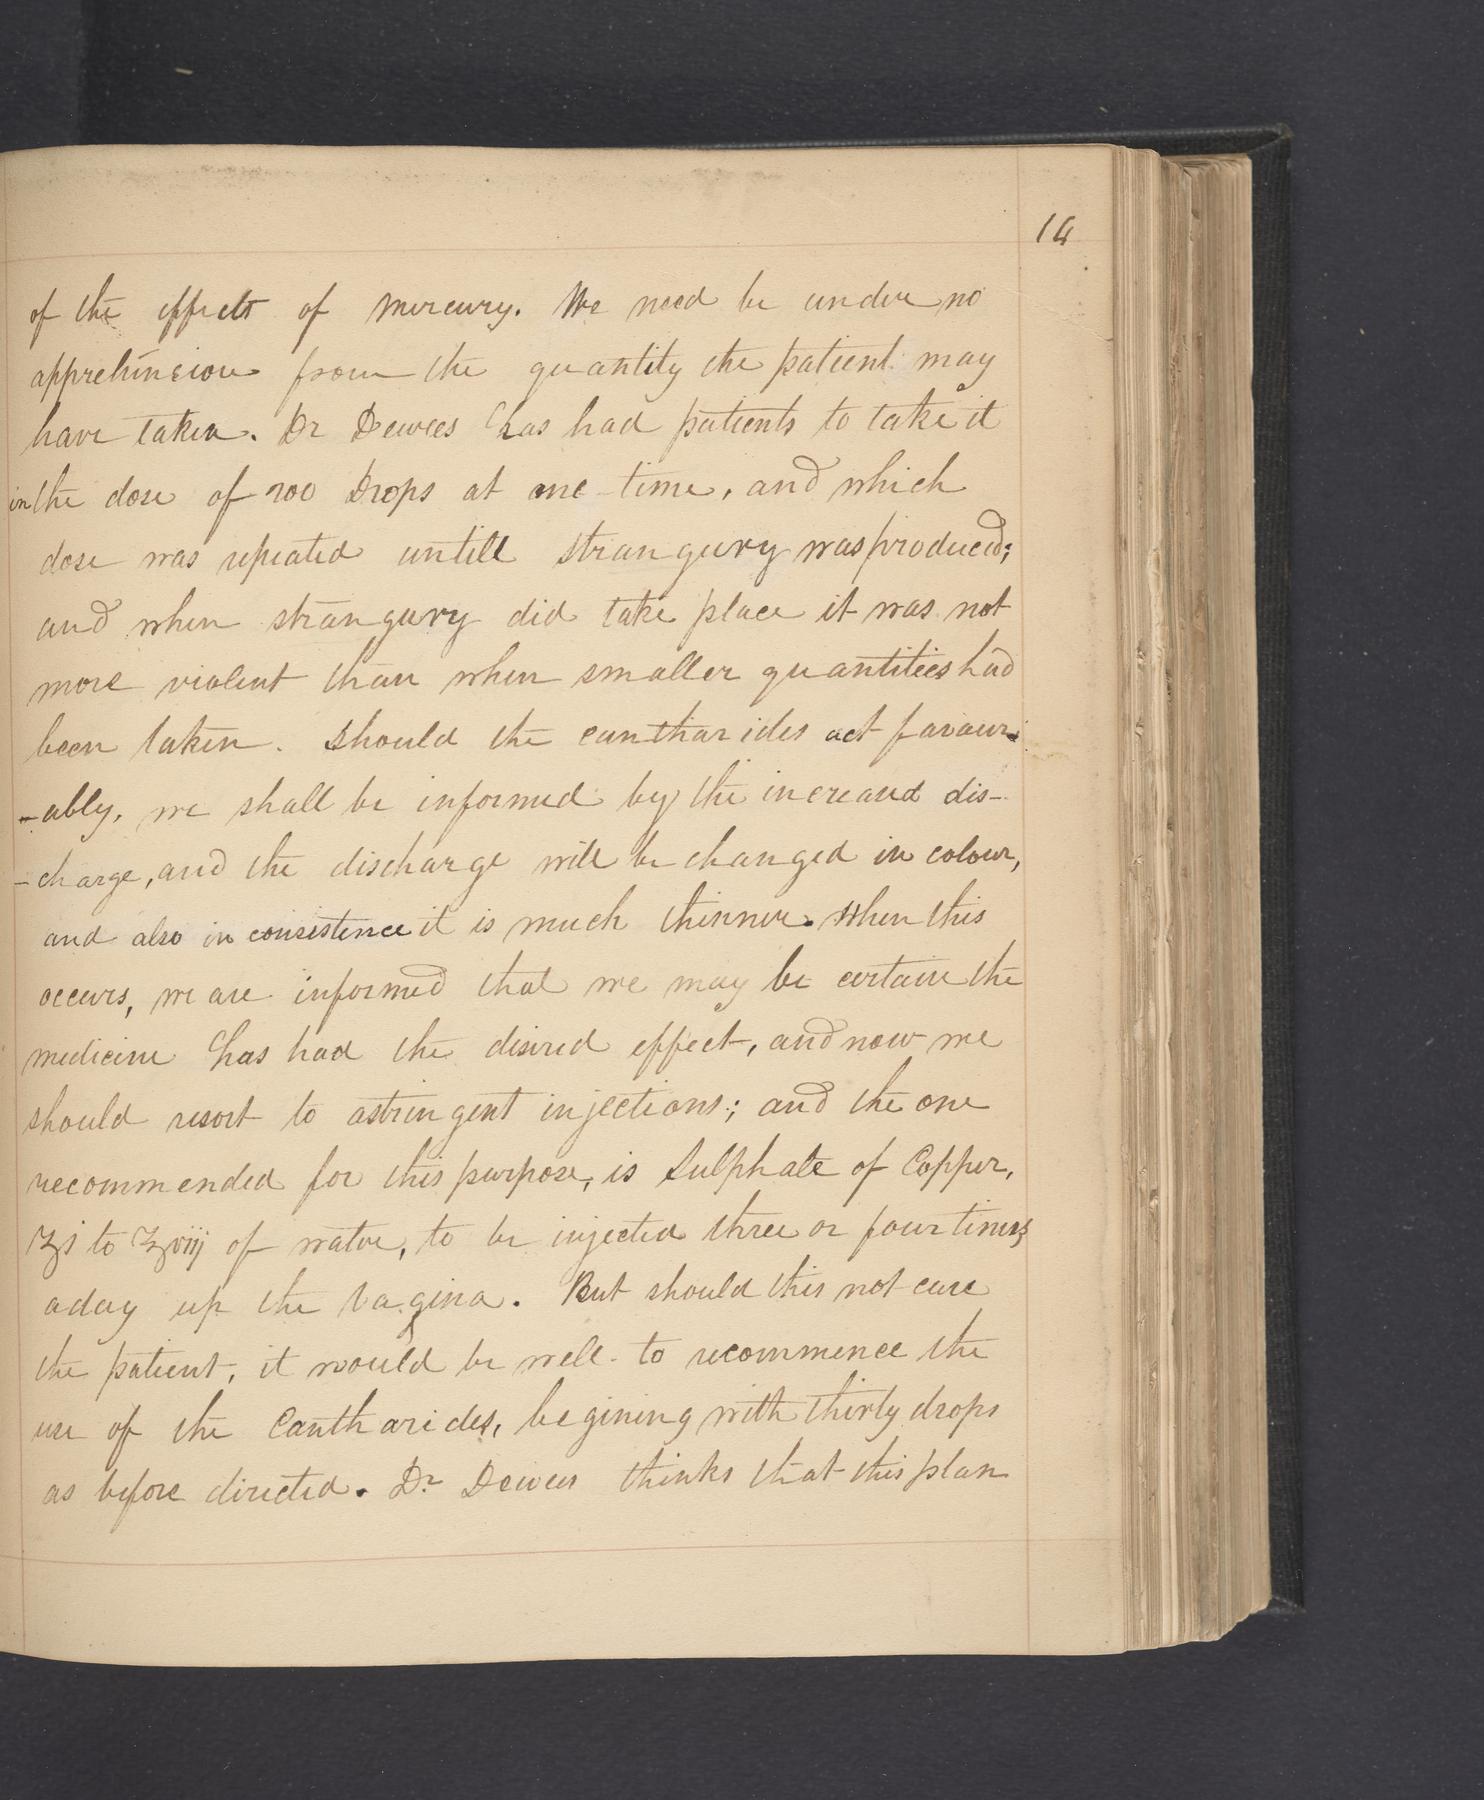 14
of the effects of mercury. We need be under no
apprehension from the quantity the patient may
have taken. Dr Dewees has had patients to take it
in the dose of 200 Drops at one time, and which
dose was repeated untill strangury was produced;
and when strangury did take place it was not
more violent than when smaller quantities had
been taken. Should the cantharides act favour-
-ably, we shall be informed by the increased dis-
-charge, and the discharge will be changed in colour,
and also in consistence it is much thinner. When this
occurs, we are informed that we may be certain the
medicine has had the desired effect, and now we
should resort to astringent injections; and the one
recommended for this purpose, is Sulphate of Copper,
ʒi to ℥viij of water, to be injected three or four times
a day up the Vagina. But should this not cure
the patient, it would be well to recommence the
use of the Cantharides, begining with thirty drops
as before directed. Dr Dewees thinks that this plan